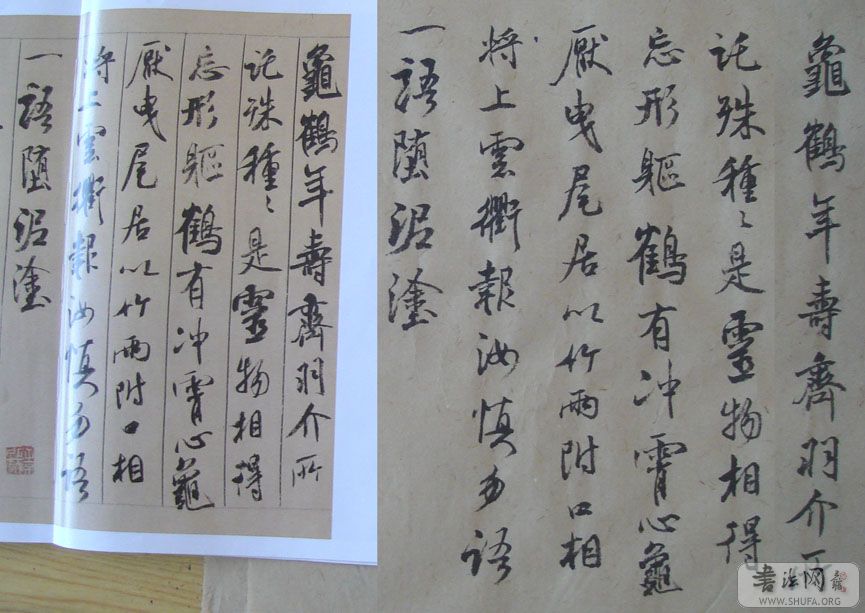 龜鶴年壽齊羽介所
託殊種〻是靈物相得
忘形軀鶴有冲霄心龜
厭曳尾居以竹兩附口相
將上雲衢報汝慎勿語
一語墮泥塗
龜鶴年壽齊羽介所
託殊種〻是靈物相得
忘形軀鶴有冲霄心龜
厭曳尾居以竹兩附口相
將上雲衢報汝慎勿語
一語墮泥塗
書法网
WWW.SHUFA.ORG